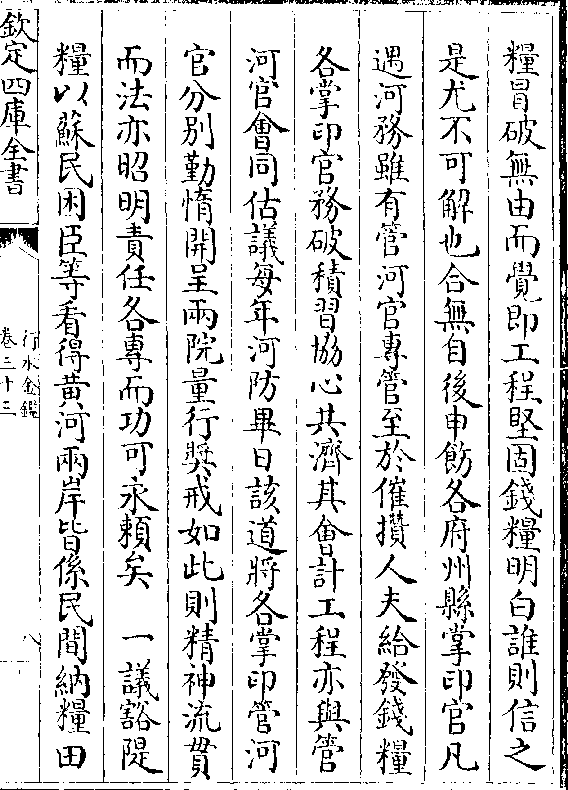 糧冒破無由而覺即工程堅固錢糧明白誰則信之
是尤不可解也合無自後申飭各府州縣掌印官凡
遇河務雖有管河官專管至於催攢人夫給發錢糧
各掌印官務破積習協心共濟其㑹計工程亦與管
河官㑹同估議每年河防畢日該道將各掌印管河
官分别勤惰開呈兩院量行奬戒如此則精神流貫
而法亦昭明責任各專而功可永頼矣　一議豁隄
糧以蘇民困臣等看得黄河兩岸皆係民間納糧田
欽定四庫全書
行水金鑑
卷三十三
八